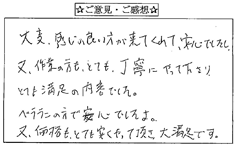 ☆ご意見・ご感想☆
大変、感じの良い方が来てくれて、安心でしたし
又、作業の方も、とても、丁寧にやって下さり
とても満足の内容でした。
ベテランの方で安心でしたよ。
又、価格も、とても安くやって頂き大満足です。